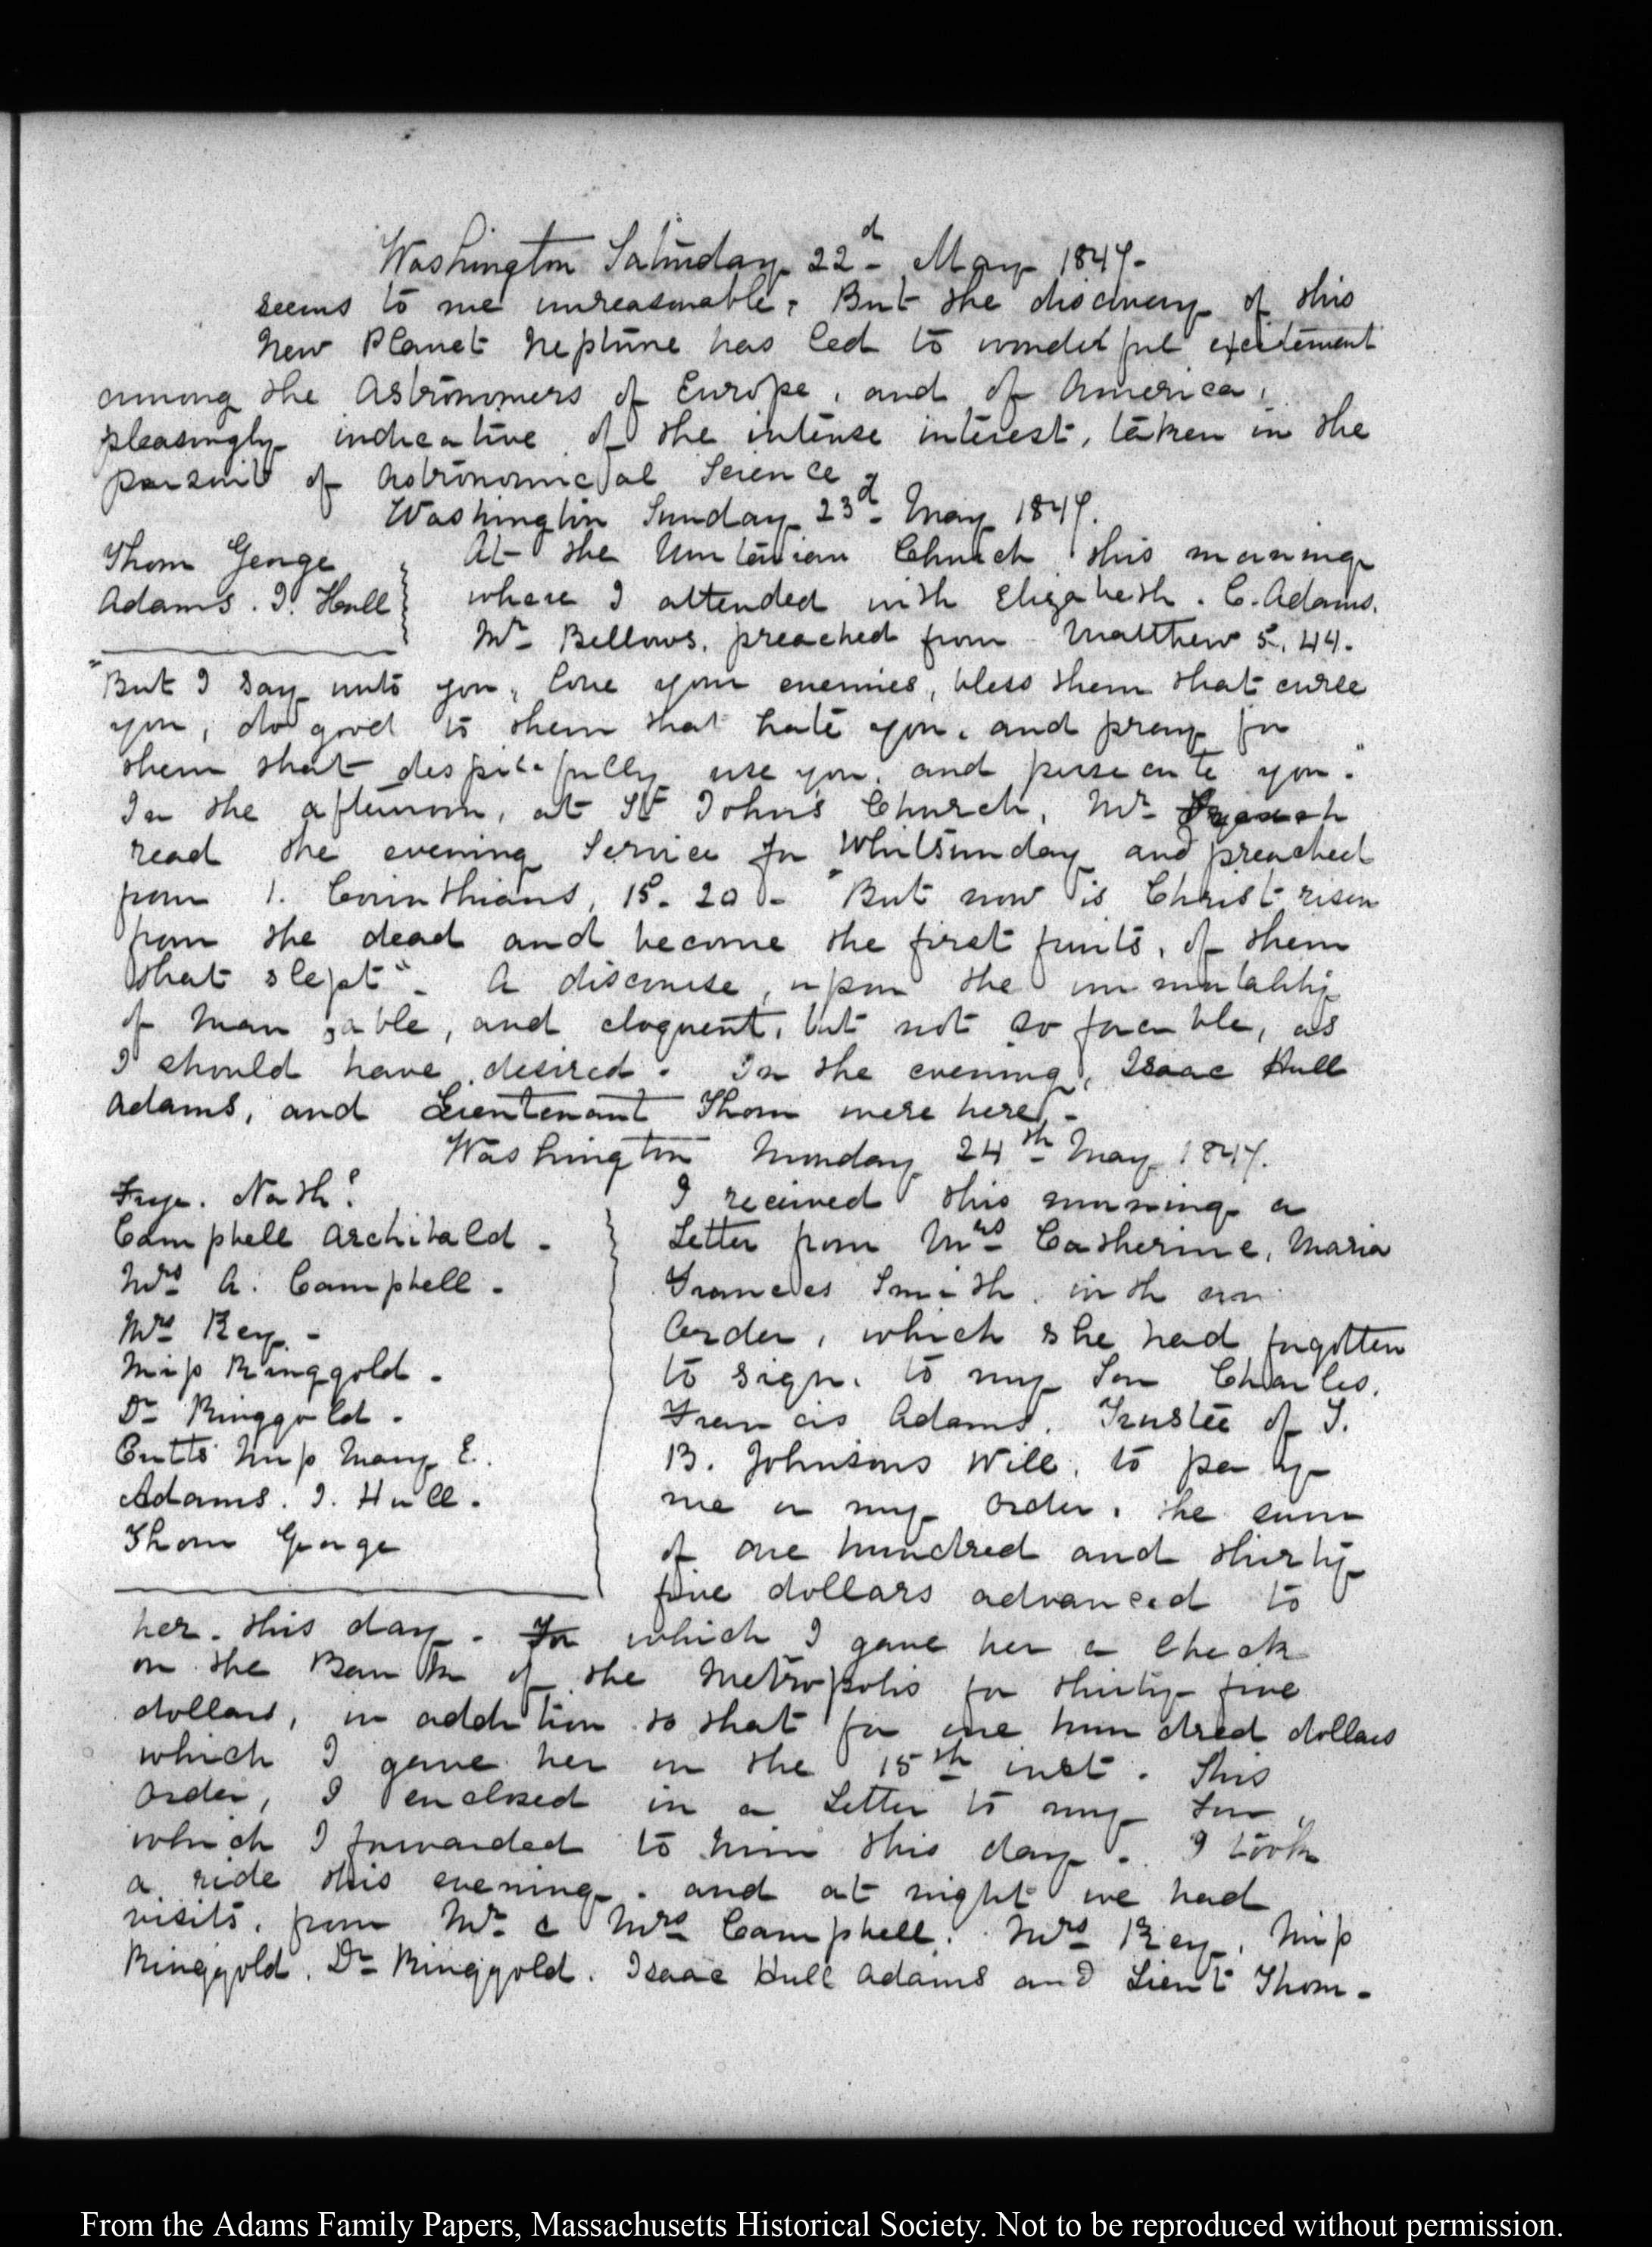 Washington Saturday 22d May 1847.
seems to me unreasonable. But the discovery of this
New Planet Neptune has led to wonderful excitement
among the Astronomers of Europe, and of America,
pleasingly indicative of the intense interest, taken in the
pursuit of Astronomical Science.
Washington Sunday 23d May 1847.
Thom George
Adams. I. Hull
At the Unitarian Church this morning
where I attended with Elizabeth. C. Adams.
Mr Bellows, preached from Matthew 5. 44.
"But I say unto you, love your enemies, bless them that curse
you, do good to them that hate you, and pray for
them that despitefully use you, and persecute you."
In the afternoon, at St John's Church, Mr
read the evening Service for Whitsunday and preached
from 1. Corinthians, 15. 20. "But now is Christ risen
from the dead and become the first fruits, of them
that slept". A discourse, upon the immortality
of Man, able, and eloquent, but not so forcible, as
I should have desired. In the evening, Isaac Hull
Adams, and Lieutenant Thom were here.
Washington Monday 24th May 1847.
Frye. Nathl
Campbell Archibald.
Mrs A. Campbell.
Mrs Key.
Miss Ringgold.
Dr Ringgold.
Cutts Miss Mary E.
Adams. I. Hull.
Thom George
I received this morning a
Letter from Mrs Catherine, Maria
Frances Smith, with an
Order, which she had forgotten
to sign, to my Son Charles.
Francis Adams, Trustee of T.
B. Johnsons Will, to pay
me or my order, the sum
of one hundred and thirty
five dollars advanced to
her this day. For which I gave her a Check
on the Bank of the Metropolis for thirty five
dollars, in addition to that for one hundred dollars
which I gave her on the 15th inst. This
Order, I enclosed in a Letter to my Son,
which I forwarded to him this day. I took
a ride this evening, and at night we had
visits, from Mr & Mrs Campbell. Mrs Key, Miss
Ringgold, Dr Ringgold. Isaac Hull Adams and Lieut Thom.
From the Adams Family Papers, Massachusetts Historical Society. Not to be reproduced without permission.